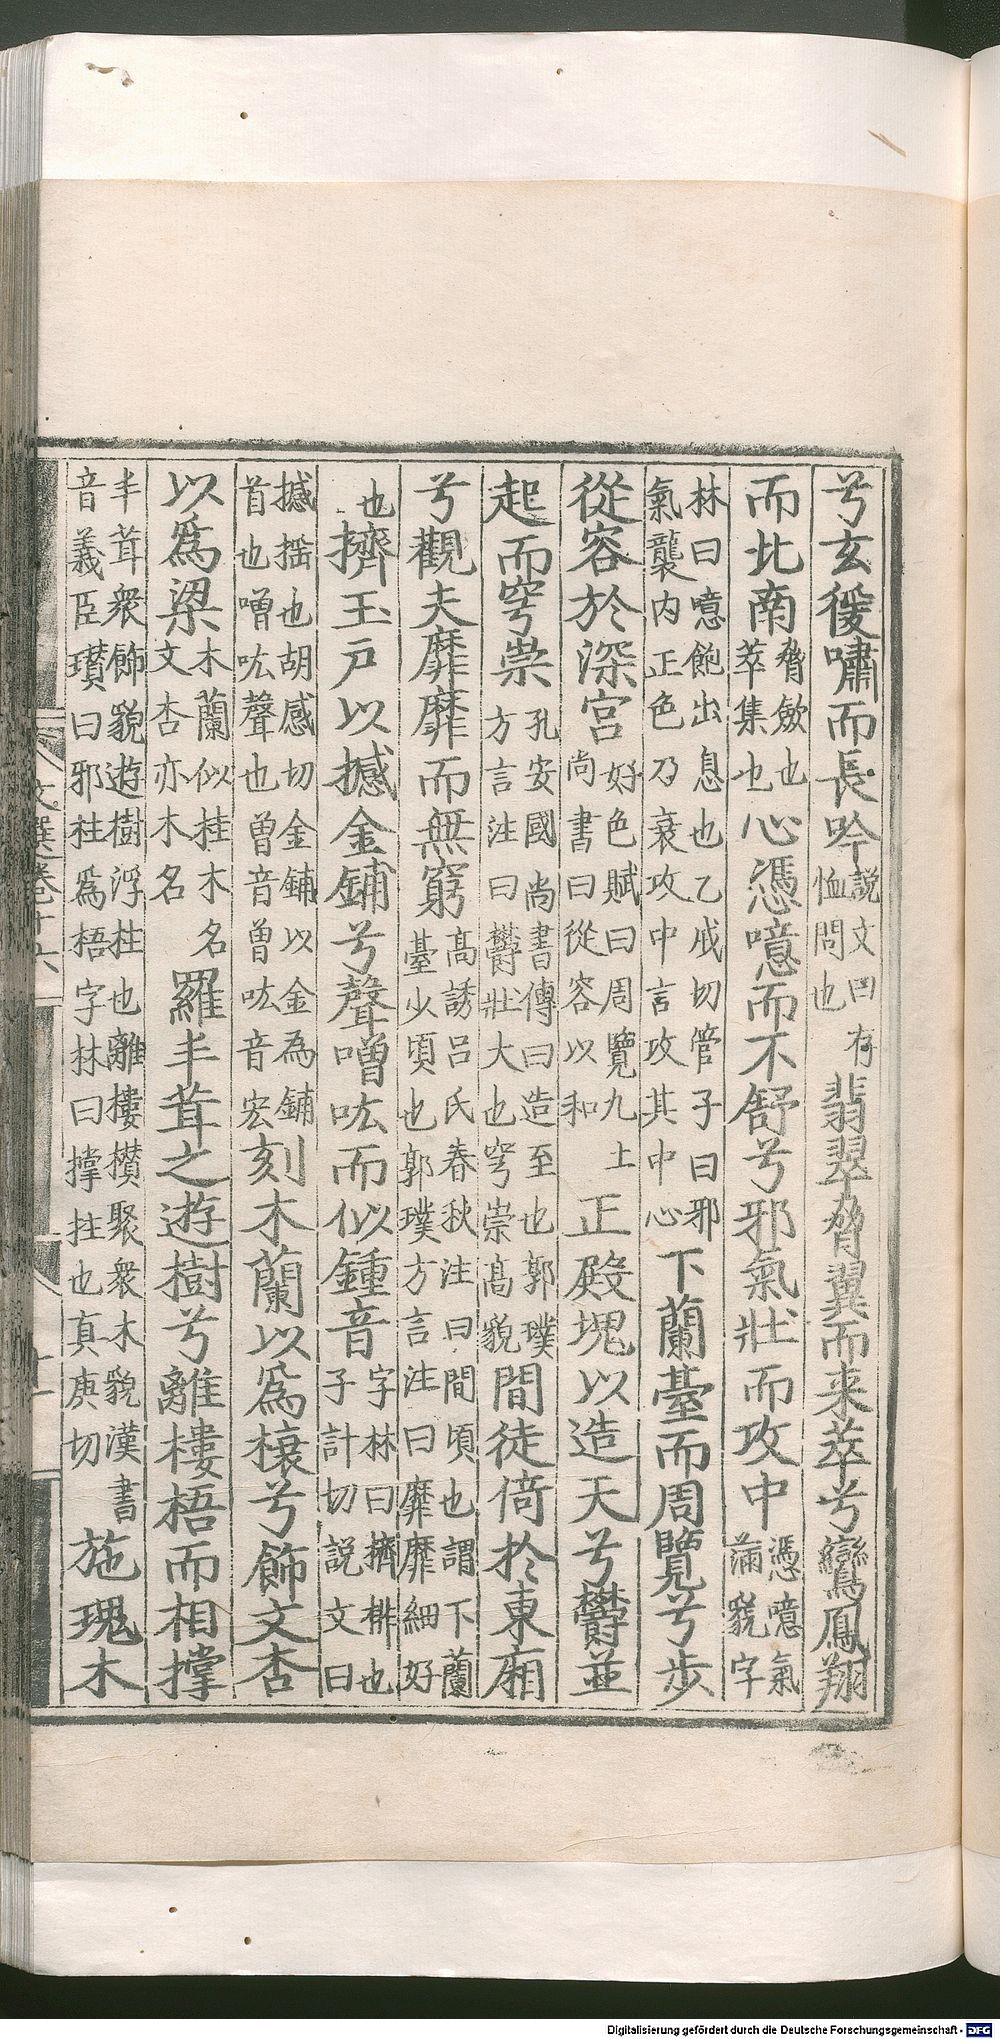 兮玄猨嘯而長吟說文曰存恤問也翡翠脅翼而来萃兮鸞鳳翔
而北南脅斂也萃集也心憑噫而不舒兮邪氣壯而攻中憑噫氣滿貌字
林曰噫飽出息也乙戒切管子曰邪氣襲内正色乃衰攻中言攻其中心下蘭臺而周覽兮步
從容於深宫好色賦曰周覽九土尚書曰從容以和正殿塊以造天兮鬱並
起而穹崇孔安國尚書傳曰造至也郭璞方言注曰鬱壯大也穹崇髙貌間徒倚於東廂
兮觀夫靡靡而無窮髙誘吕氏春秋注曰間頃也謂下蘭臺少頃也郭璞方言注曰靡靡細好
也擠玉戸以撼金鋪兮聲噌吰而似鍾音字林曰擠排也子計切説文曰
撼揺也胡感切金鋪以金為鋪首也噌吰聲也曾音曾吰音宏刻木蘭以爲榱兮飾文杏
以爲梁木蘭似桂木名文杏亦木名羅丰茸之遊樹兮離樓梧而相撑
丰茸衆飾貌遊樹浮柱也離樓攢聚衆木貌漢書音義臣瓉曰邪柱爲梧字林曰撑拄也真庚切施瑰木
文選卷十六
Digitalisierung gefördert durch die Deutsche Forschungsgemeinschaft - DFG